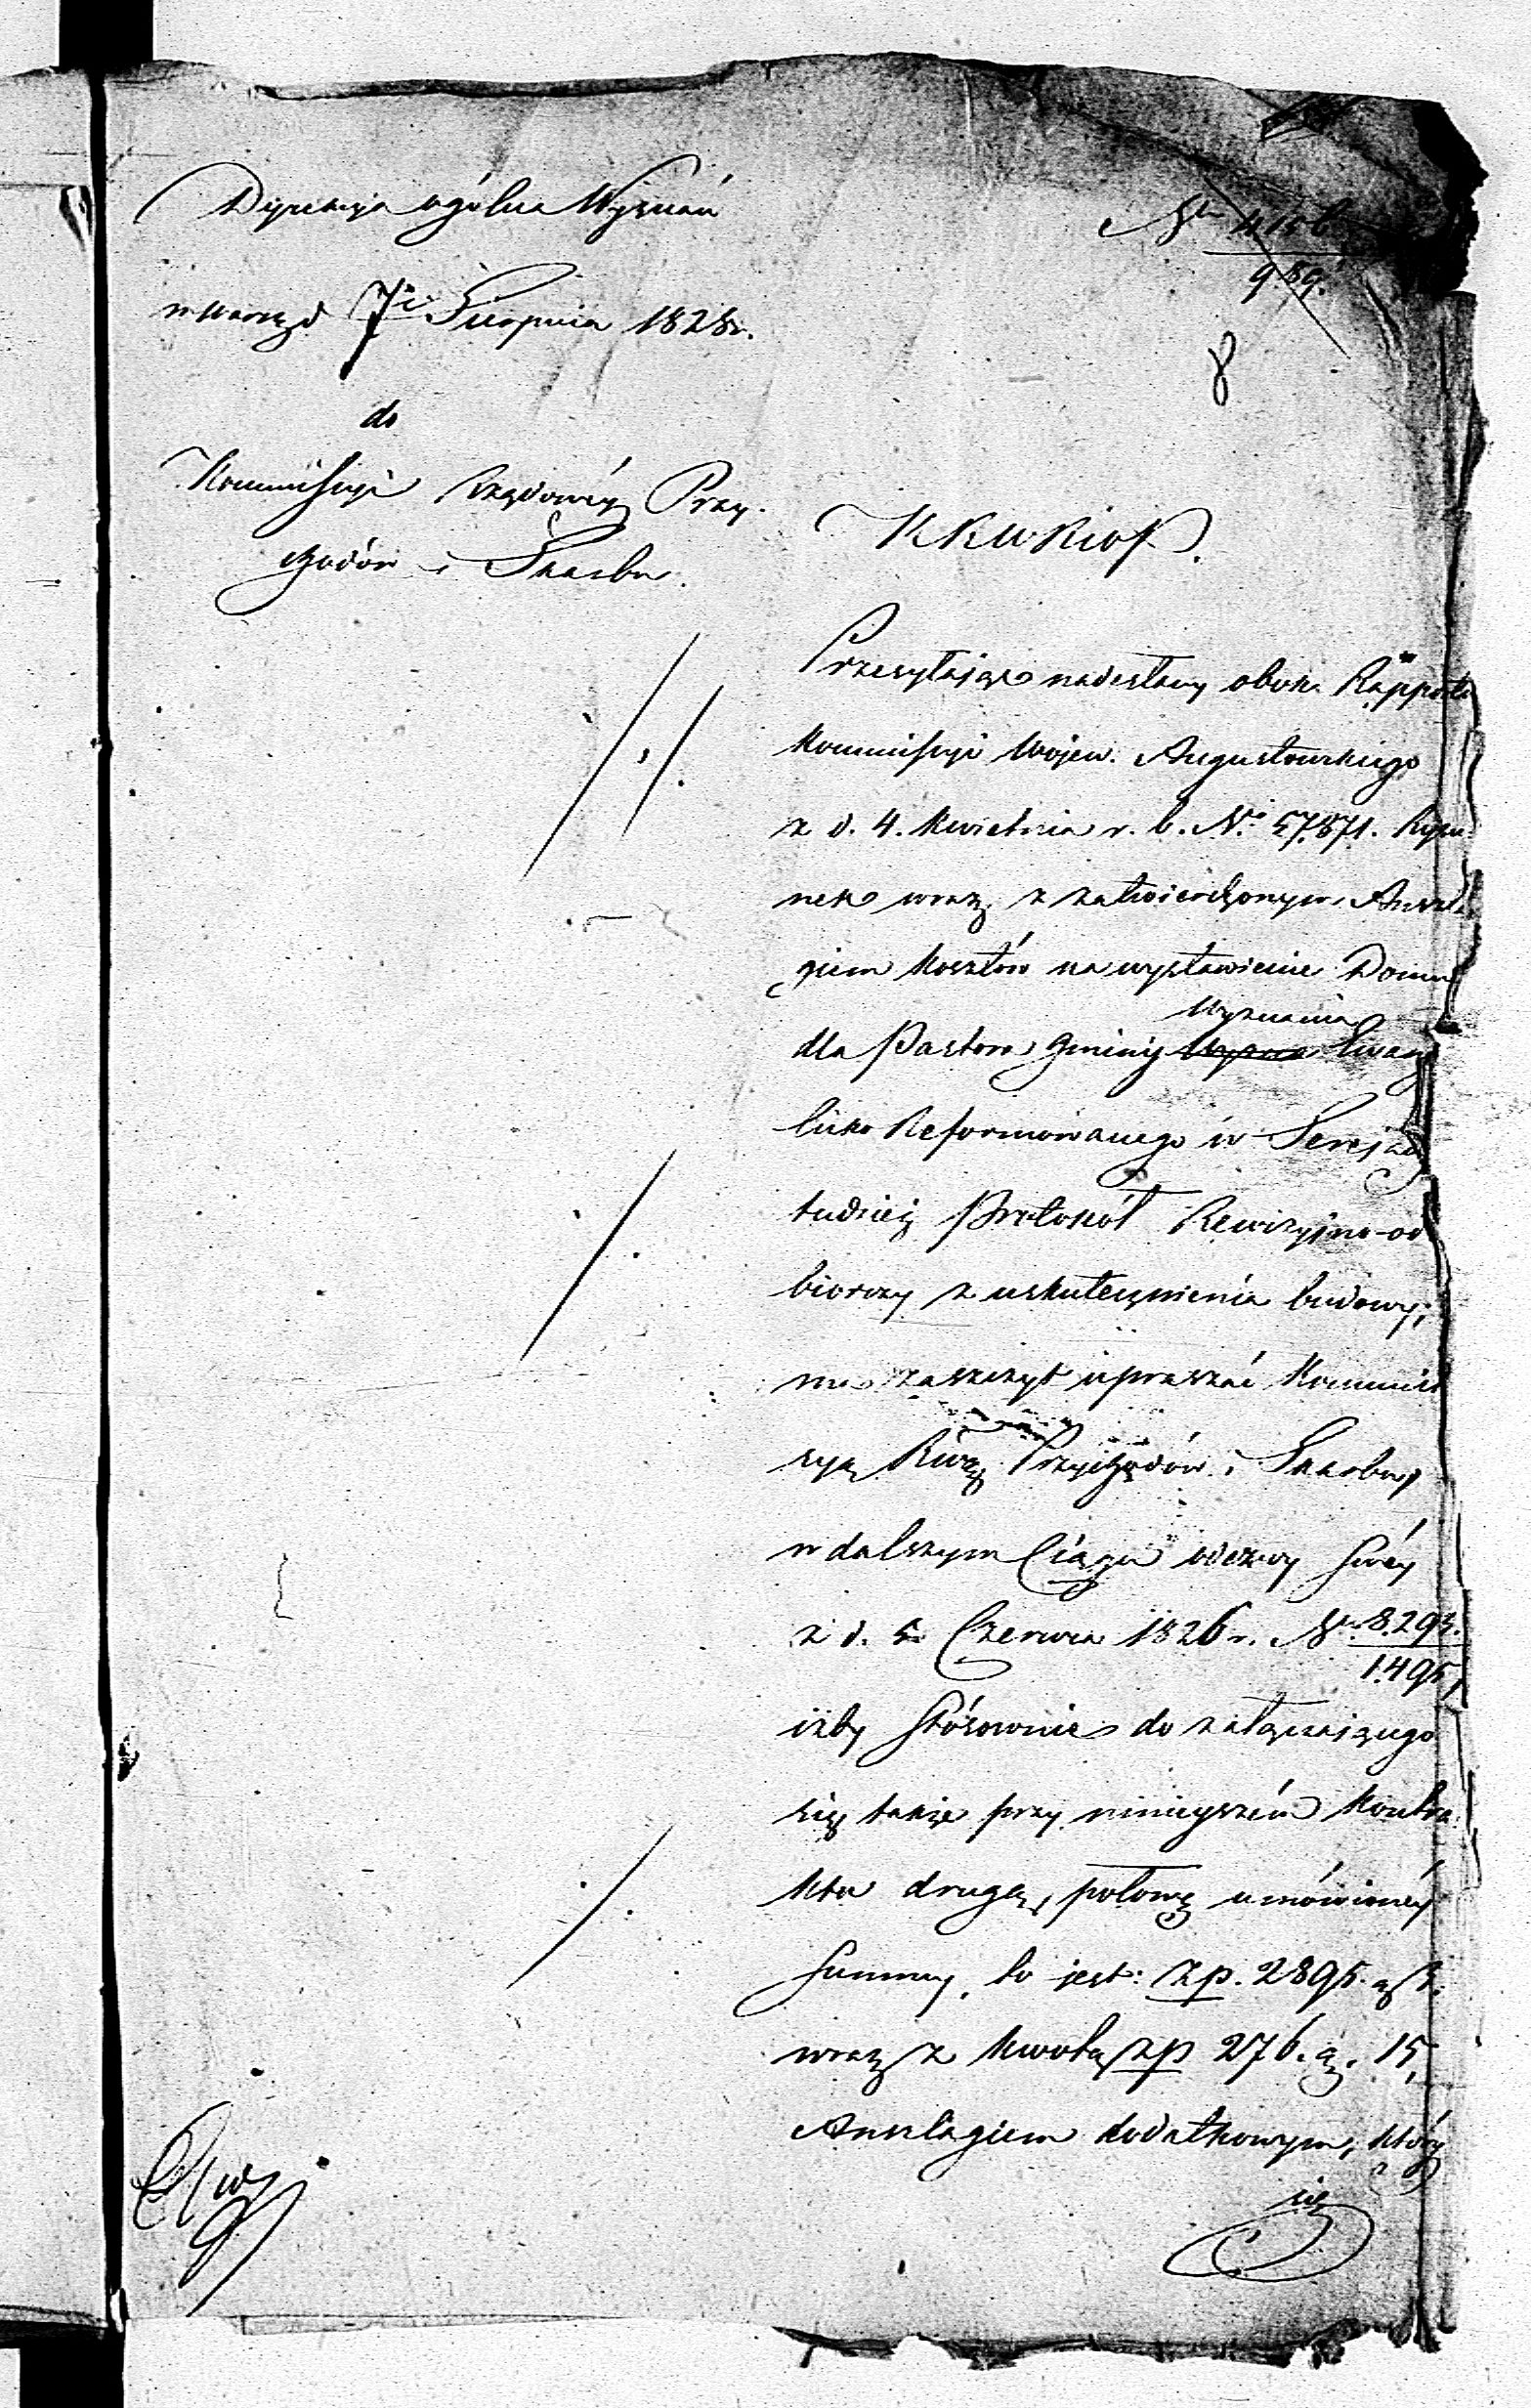 Dyrekcyja ogólna Wyznań
w Warsz. d 7 Sierpnia 1828 r.
8
do
Kommissyi Rządowéy Przy-
chodów i Skarbu.
KRWRiOP.
Przesyłając nadesłany obok Rapportu
Kommissyi Wojew. Augustowskiego
z d. 4. Kwietnia r. b. N. 57871. Rysu-
nek wraz z zatwierdzonym Anszla-
giem kosztów na wystawienie Domu
Wyznania
dla Pastora Gminy Ewang
licko Reformowanego w Serejach
tudzież Protokół Rewizyjno-od
biorczy z uskutecznienia budowy,
ma zaszczyt upraszać Kommis
syą Rząd. Przychodów i Skarbu,
w dalszym Ciągu odezwy Swéy
z d. 5 Czerwca 1826 r. Nr. 8.293.
1.495,
iżby stósownie do załączającego
się także przy ninieyszém Kontra-
ktu drugą połowę umówionéy
Summy, to jest: zp. 2895.
wraz z kwotą zp 276. g. 15,
Anszlagiem dodatkowym, który
się